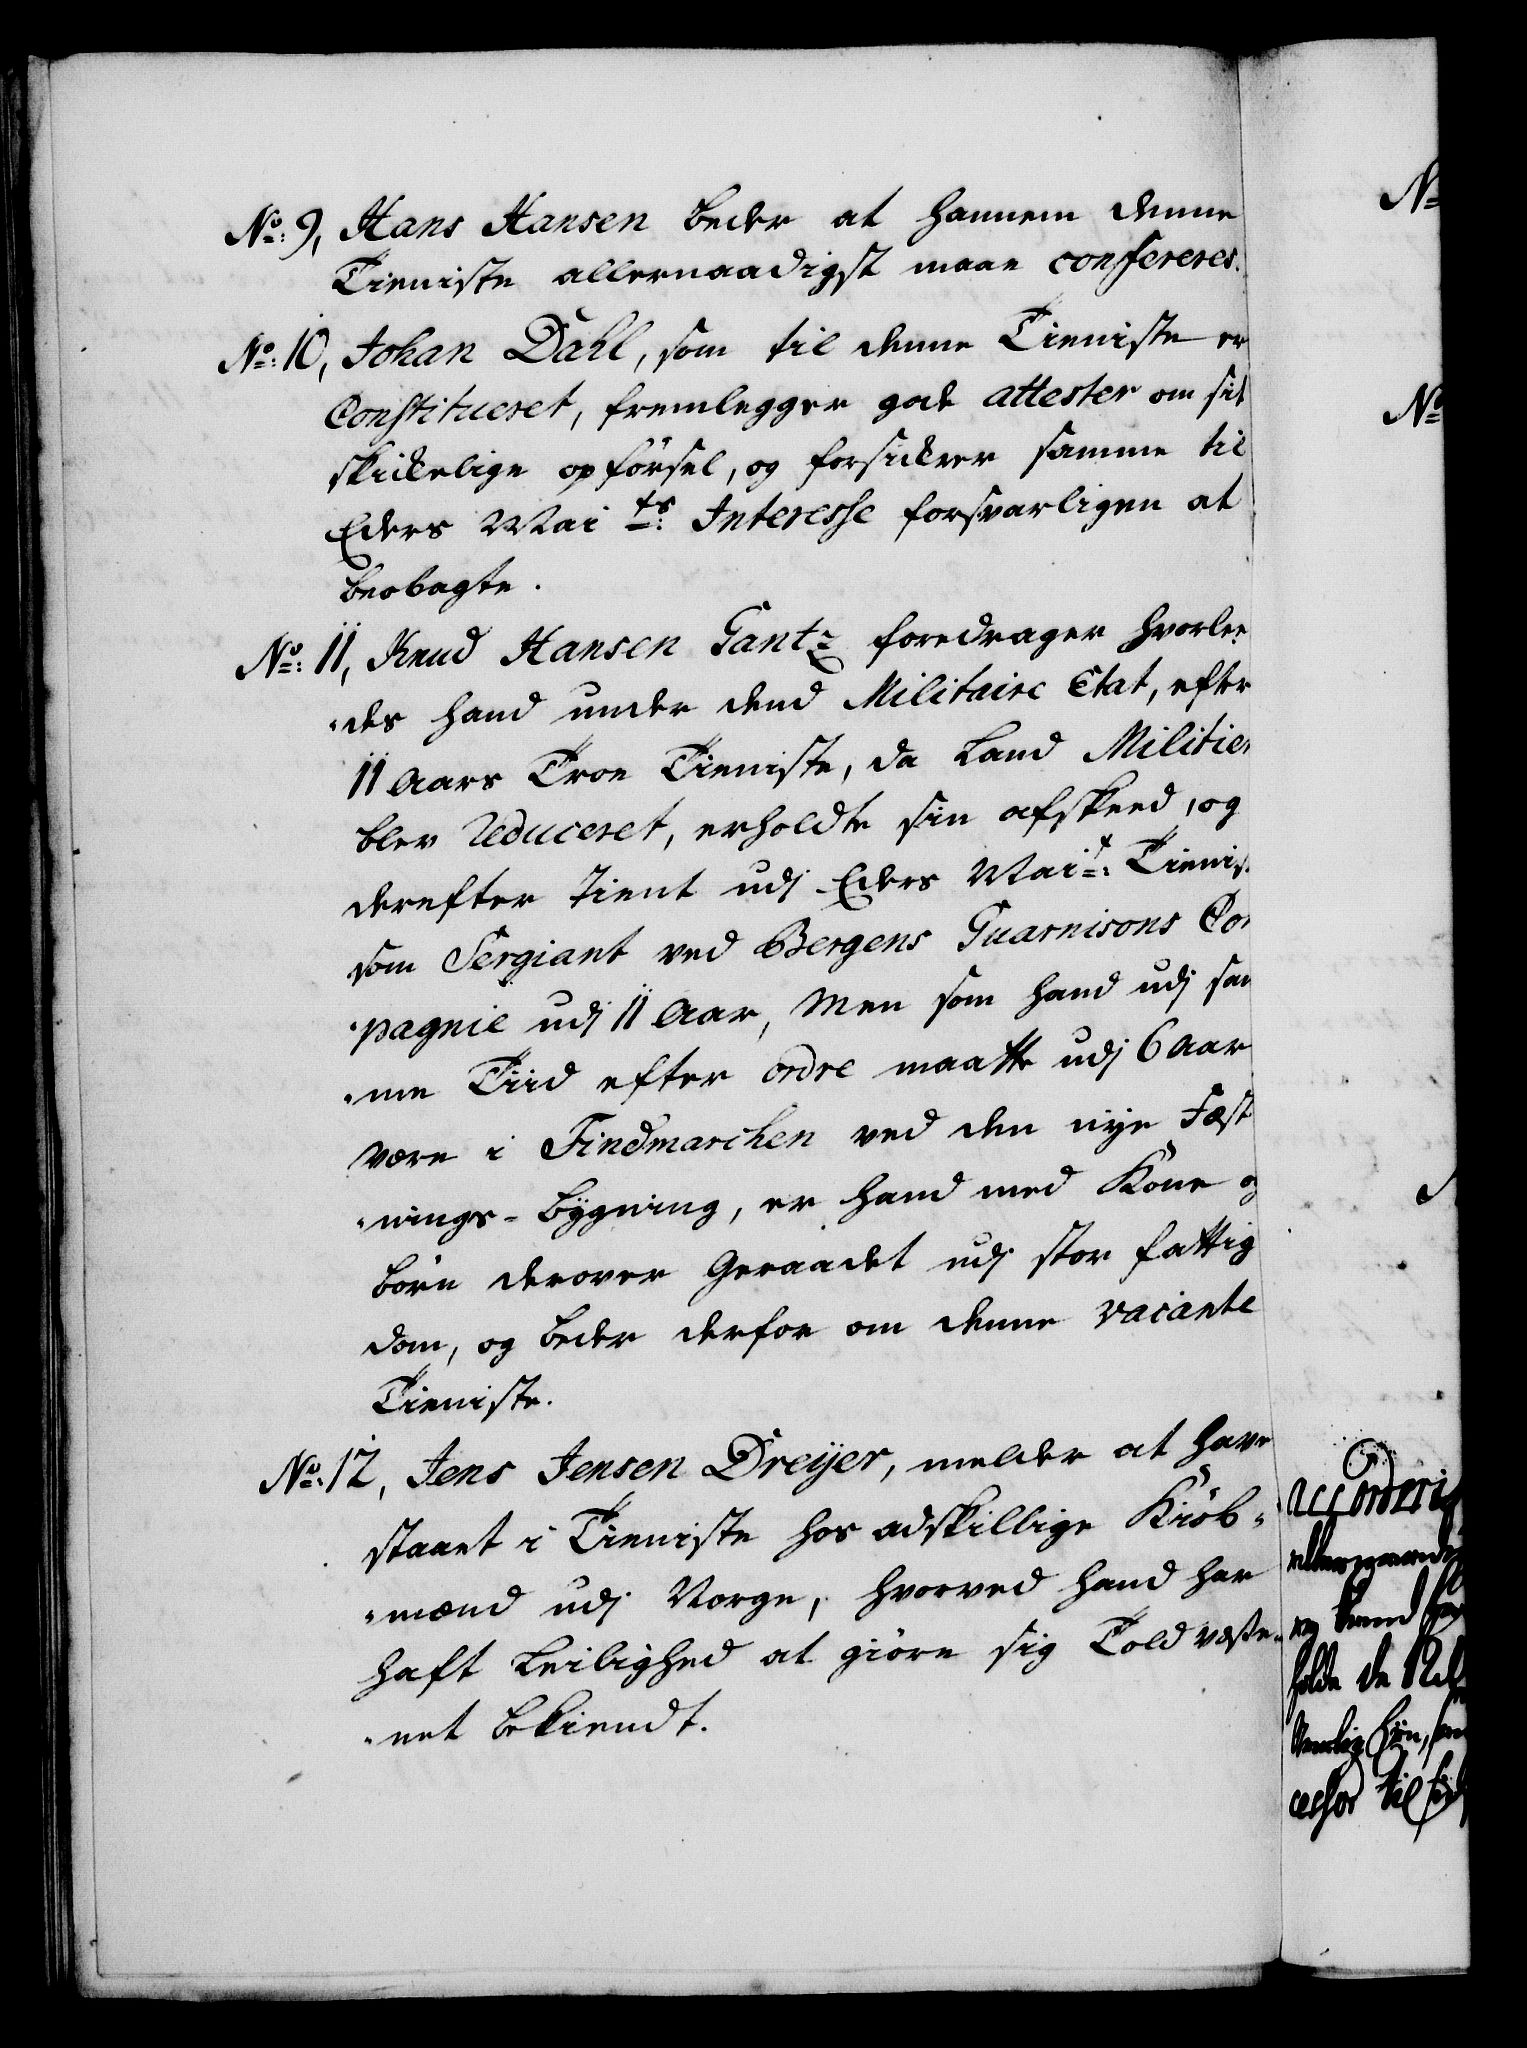 No: 9, Hans Hansen beder at hannem denne
Tieniste allernaadigst maae confereres.
No: 10, Johan Dahl, som til denne Tieniste er
Constitueret, fremlegger gode attester om sit
skickelige opførsel, og forsickrer samme til
Eders Mai ts: Interesse forsvarligen at
beobagte.
No: 11, Knud Hansen Gantz foredrager hvorlee
des hand under dend Militaire Etat, efter
11 Aars Troe Tieniste, da Land Militien
blev Reduceret, erholdte sin afskeed, og
derefter tient udj Eders Mai t: Tienist
som Sergiant ved Bergens Guarnisons Com
pagnie udj 11 Aar, Men som hand udj sam
me Tiid efter ordre maatte udj 6 Aar
være i Findmarchen ved den nye Fæst
nings-bÿgning, er hand med Kone og
børn derover Geraadet udj stor fattig
dom, og beder derfor om denne vacante
Tieniste.
No: 12, Jens Jensen Dreÿer, melder at have
staaet i Tieniste hos adskillige Kiøb-
mænd udj Norge, hvorved hand har
haft Leilighed at giøre sig Toldvæse-
net bekiendt.
No
No
holde de
cessor til